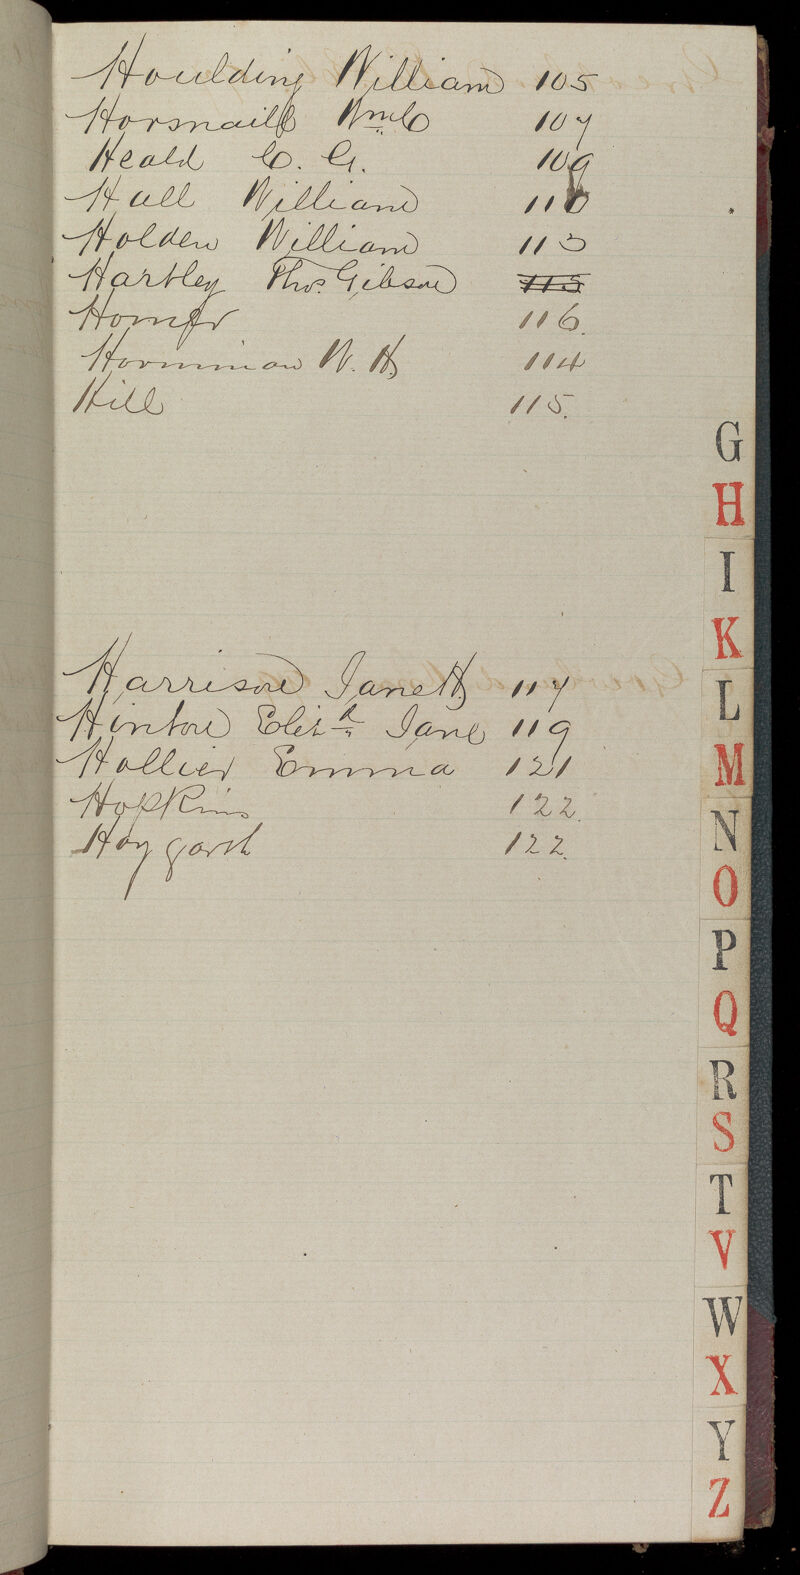 Houlding William 105
Horsnaill Wm C 107
Heald C. G. 109
Hall William 110
Holden William 113
Hartley Thos. Gibson 115
Homer 116.
Horniman W. H. 114
Hill 115.
Harrison Jane H. 117
Hinton Elizth Jane 119
Hollier Emma 121
Hopkins 122.
Haygarth 122.
G
H
I
K
L
M
N
O
P
Q
R
S
T
V
W
X
Y
Z